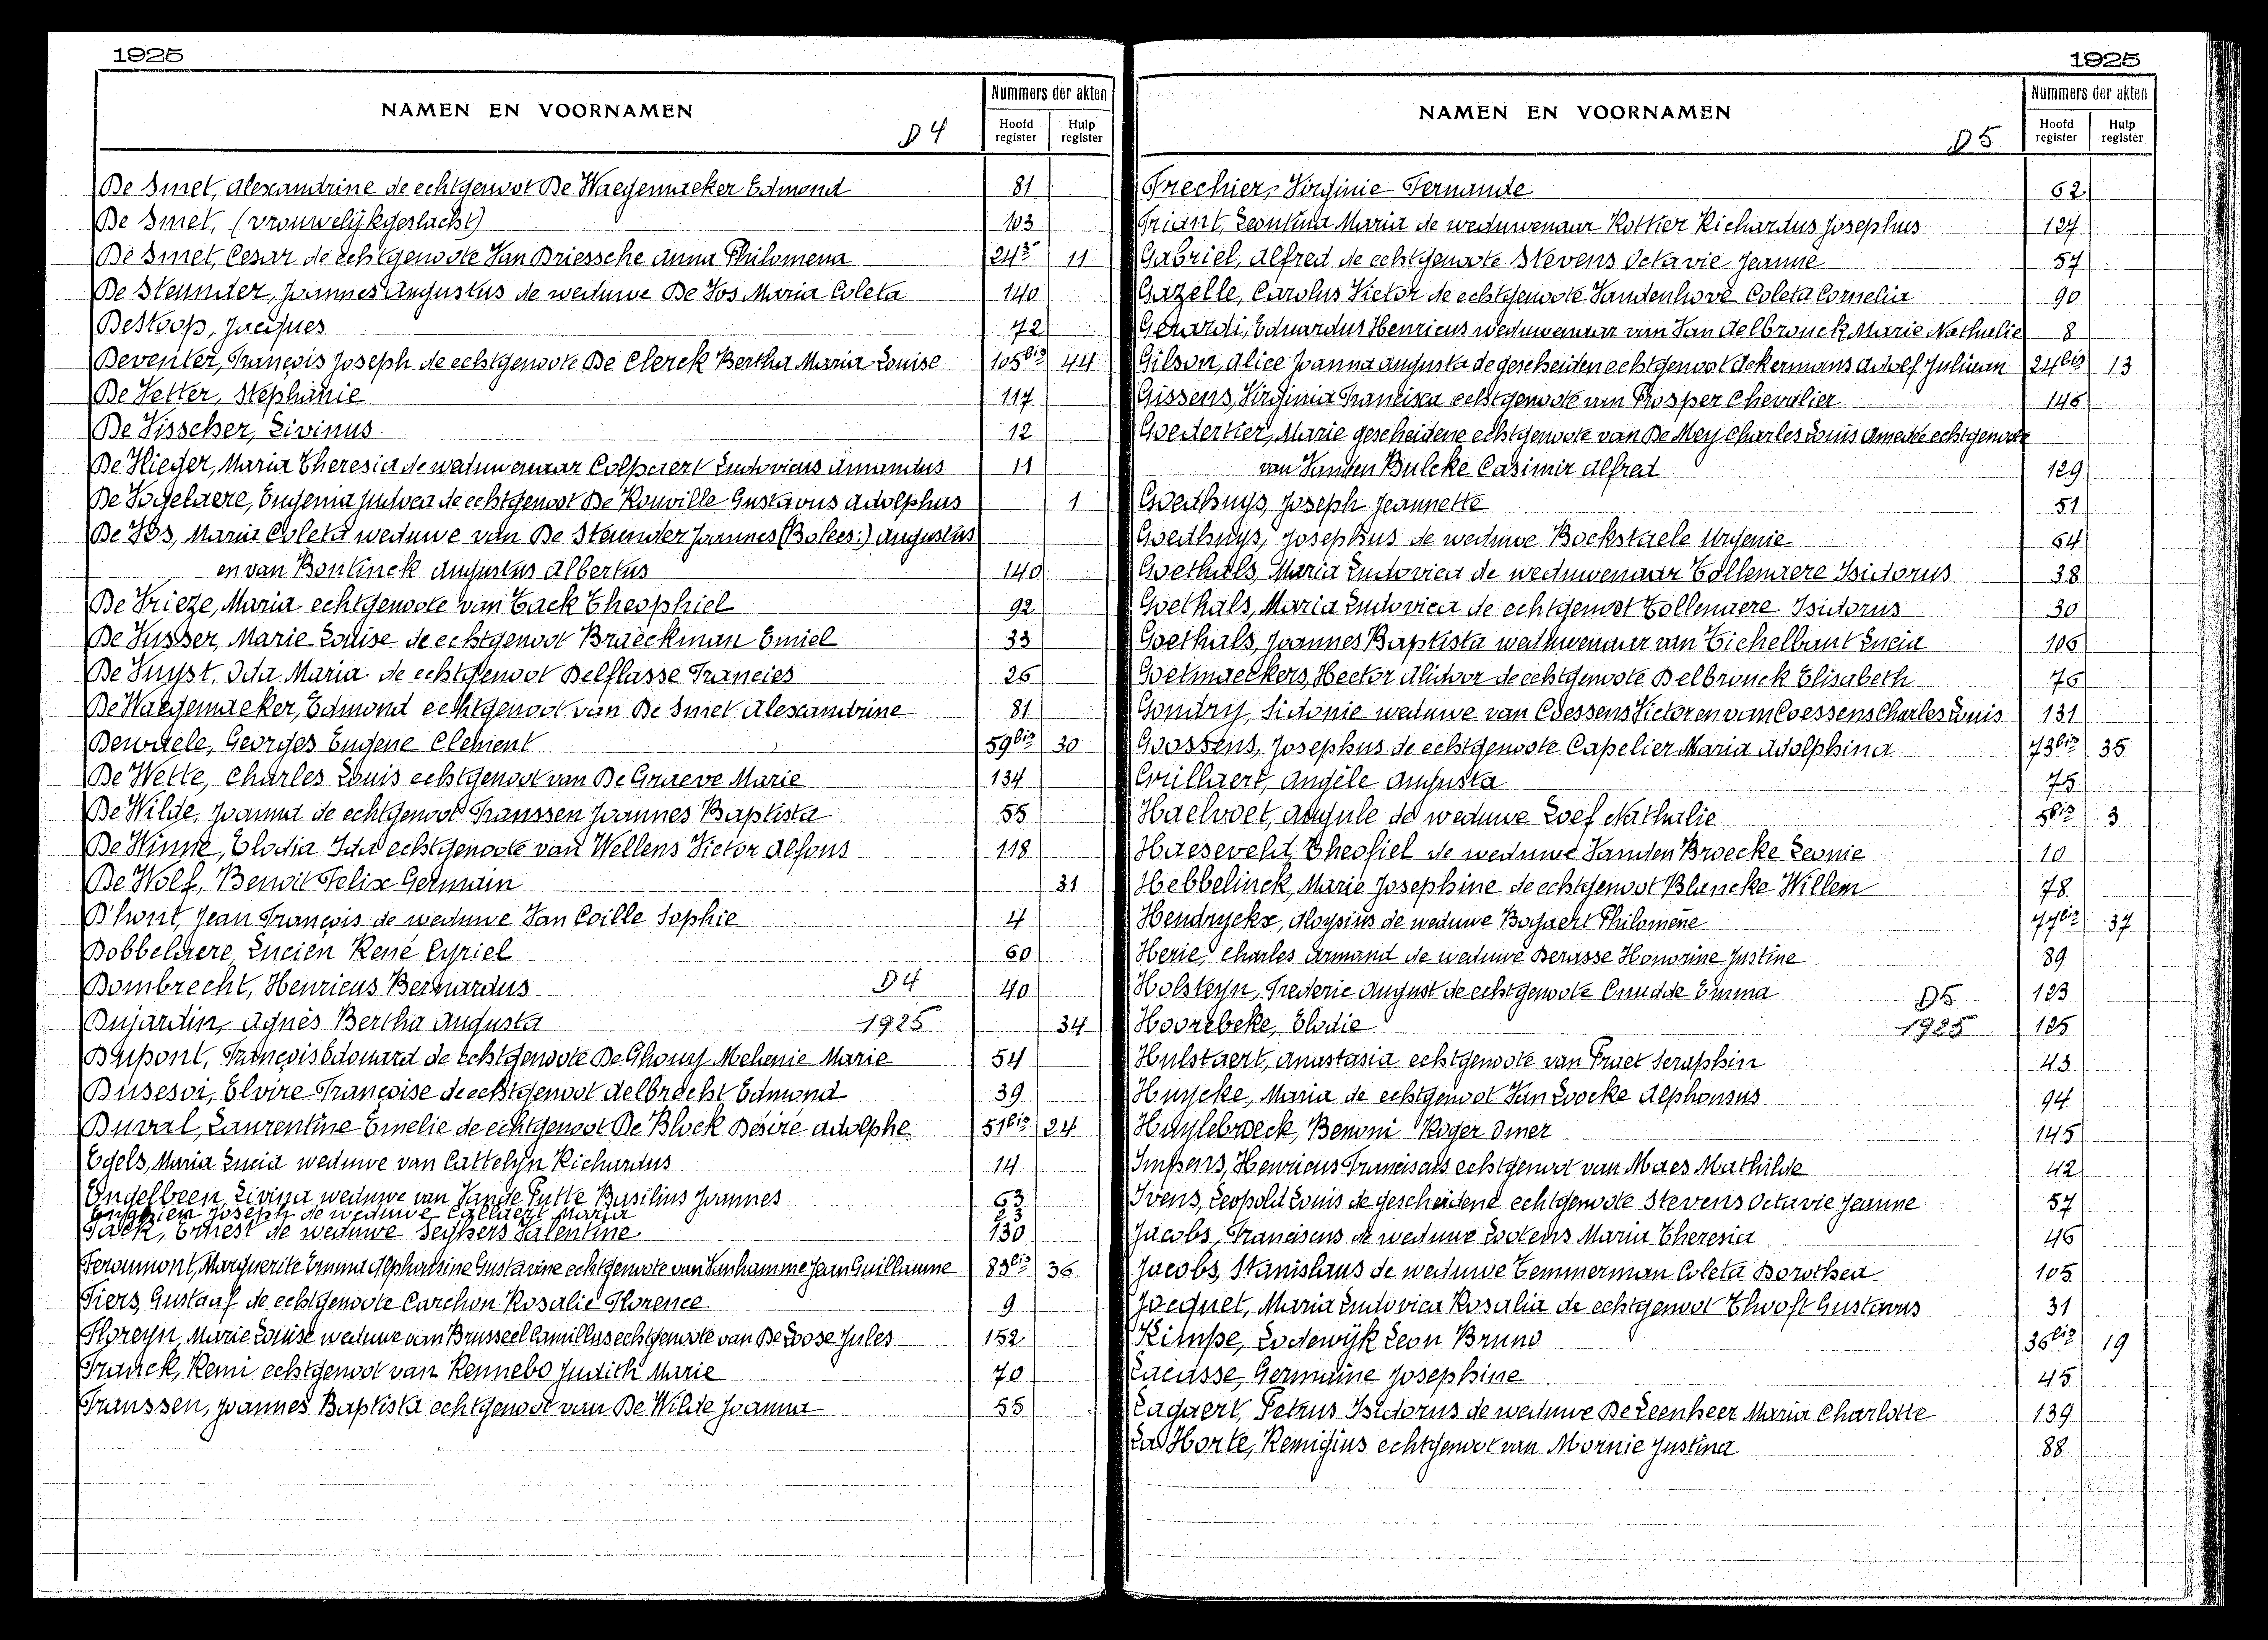 1925
NAMEN EN VOORNAMEN
D4
Nummers der akten
Hoofd register
Hulp register
De Smet, Alexandrine de echtgenoot De Waegemaeker Edmond 81
De Smet, (vrouwelijk geslacht) 103
De Smet, Cesar de echtgenoote Van Driessche Anna Philomena 24 11
De Steunder, Joannes Augustus de weduwe De Vos Maria Coleta 140
De Stoop, Jacques 72
Deventer, François Joseph de echtgenoote De Clerck Bertha Maria Louise 105bis 44
De Vetter, Stephanie 117
De Visscher, Livinus 12
De Vlieger, Maria Theresia de weduwenaar Colpaert Ludovicus Amandus 11
De Vogelaere, Eugenia Judoca de echtgenoot De Rouville Gustavus Adolphus 1
De Vos, Maria Coleta weduwe van De Steunder Joannes (Bolees:) Augustus
en van Bontinck Augustus Albertus 140
De Vrieze, Maria echtgenoote van Tack Theophiel 92
De Vusser, Marie Louise de echtgenoot Braeckman Emiel 33
De Vuyst, Ida Maria de echtgenoot Delflasse Francies 26
De Waegemaeker, Edmond echtgenoot van De Smet Alexandrine 81
Dewaele, Georges Eugene Clement 59bis 30
De Wette, Charles Louis echtgenoot van De Graeve Marie 134
De Wilde, Joanna de echtgenoot Franssen Joannes Baptista 55
De Winne, Elodia Ida echtgenoote van Wellens Victor Alfons 118
De Wolf, Benoit Felix Germain 31
D'hont, Jean François de weduwe Van Coille Sophie 4
Dobbelaere, Lucien René Cyriel 60
Dombrecht, Henricus Bernardus D4 40
Dujardin, Agnès Bertha Augusta 1925 34
Dupont, François Edouard de echtgenoote De Ghouy Melanie Marie 54
Dusesoi, Elvire Françoise de echtgenoot Aelbrecht Edmond 39
Duvval, Laurentine Emelie de echtgenoot De Block Désiré Adolphe 51bis 24
Egels, Maria Lucia weduwe van Cattelyn Richardus 14
Engelbeen, Livina weduwe van Vande Putte Basilius Joannes 63
Joseph de weduwe Callaert Maria 23
Fack, Ernest de weduwe Seghers Valentine 130
Feroumont, Marguerite Emma Alphonsine Gustavine echtgenoote van Vanhamme Jean Guillaume 83bis 36
Fiers, Gustaaf de echtgenoote Carchon Rosalie Florence 9
Floreyn, Marie Louise weduwe van Brusseel Camillus echtgenoote van De Loose Jules 152
Franck, Remi echtgenoot van Rennebo Judith Marie 70
Franssen, Joannes Baptista echtgenoot van De Wilde Joanna 55
1925
NAMEN EN VOORNAMEN
D5
Nummers der akten
Hoofd register
Hulp register
Frechier, Virginie Fernande 62
Friant, Leontina Maria de weduwenaar Rottier Richardus Josephus 127
Gabriel, Alfred de echtgenoote Stevens Octavie Jeanne 57
Gazelle, Carolus Victor de echtgenoote Vandenhove Coleta Cornelia 90
Gerardi, Eduardus Henricus weduwenaar van Van Aelbrouck Marie Nathalie 8
Gilson, Alice Joanna Augusta de gescheiden echtgenoot Ackermans Adolf Juliaan 24bis 13
Gissens, Virginia Francisca echtgenoote van Prosper Chevalier 146
Goedertier, Marie gescheidene echtgenoote van De Mey Charles Louis Amedée echtgenoote
van Vanden Bulcke Casimir Alfred 129
Goethuys, Joseph Jeannette 51
Goethuys, Josephus de weduwe Bockstaele Urgenie 64
Goethals, Maria Ludovica de weduwenaar Tollenaere Isidorus 38
Goethals, Maria Ludovica de echtgenoot Tollenaere Isidorus 30
Goethals, Joannes Baptista weduwenaar van Eichelbaut Lucia 106
Goetmaeckers, Hector Alidoor de echtgenoote Delbrouck Elisabeth 76
Gondry, Sidonie weduwe van Coessens Victor en van Coessens Charles Louis 131
Goossens, Josephus de echtgenoote Capelier Maria Adolphina 73bis 35
Grillaert, Angèle Augusta 75
Haelvoet, Augule de weduwe Loef Nathalie 5bis 3
Haesevelt, Theofiel de weduwe Vanden Broecke Leonie 10
Hebbelinck, Marie Josephine de echtgenoot Blancke Willem 78
Hendryckx, Aloysius de weduwe Bogaert Philomène 77bis 37
Herie, Charles Armand de weduwe Derasse Honorine Justine 89
Holsteyn, Frederic August de echtgenoote Crudde Emma D5 123
Hoorebeke, Elodie 1925 125
Hulstaert, Anastasia echtgenoote van Praet Seraphin 43
Huycke, Maria de echtgenoot Van Loocke Alphonsus 94
Huylebroeck, Benoni Roger Omer 145
Impens, Henricus Franciscus echtgenoot van Maes Mathilde 42
Ivens, Leopold Louis de gescheidene echtgenoote Stevens Octavie Jeanne 57
Jacobs, Franciscus de weduwe Lootens Maria Theresia 46
Jacobs, Stanislaus de weduwe Temmerman Coleta Dorothea 105
Jocquet, Maria Ludovica Rosalia de echtgenoot Elwoft Gustavus 31
Kimpe, Lodewijk Leon Bruno 36bis 19
Lacasse, Germaine Josephine 45
Lagaert, Petrus Isidorus de weduwe De Leenheer Maria Charlotte 139
La Horte, Remigius echtgenoot van Mornie Justina 88